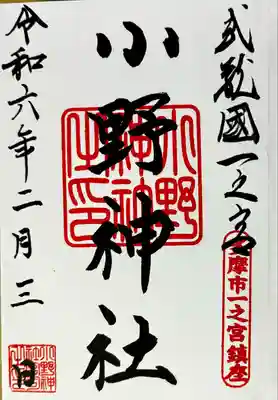 武蔵國一之宮
多摩市一之宮鎮座
小野神社
小野神社之印
令和六年二月三日